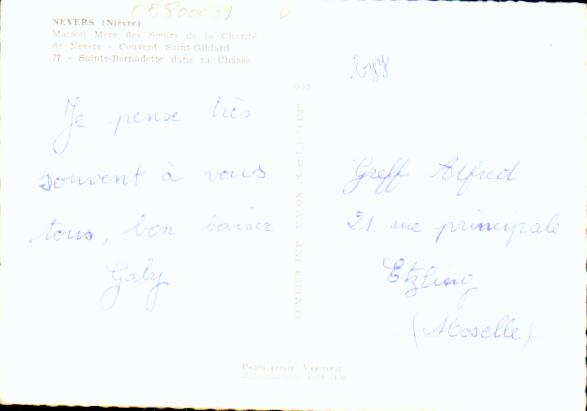 05800039 D
NEVERS (Nièvre)
Maison Mère des Sœurs de la Charité
de Nevers - Couvent Saint-Gildard
77 - Sainte-Bernadette dans sa Châsse
Je pense très
souvent à vous
tous, bon baiser
Gaby
COMBIER IMP. MACON
Greff Alfred
21. rue principale
Etzling
(Moselle)